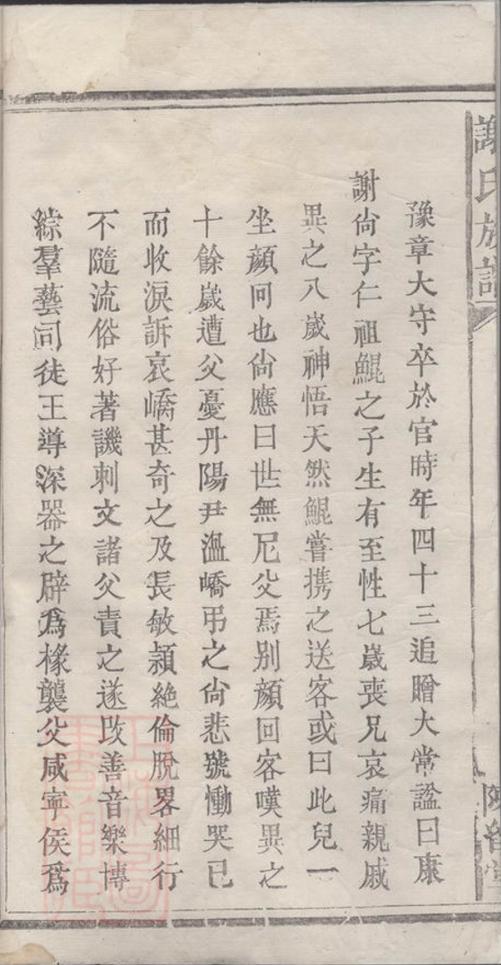 謝氏族譜
豫章大守卒於官時年四十三追贈大常謚曰康
謝尙字仁祖鯤之子生有至性七歲喪兄哀痛親戚
異之八歲神悟天然鯤嘗携之送客或曰此兒一
坐顏回也尙應曰世無尼父焉別顏回客嘆異之
十餘歲遭父憂丹陽尹溫嶠弔之尙悲號慟哭已
而收淚訴哀嶠甚奇之及長敏頴絶倫脫畧細行
不隨流俗好著譏刺文諸父責之遂改善音樂博
綜羣藝司徒王導深器之辟爲椽襲父咸寧侯爲